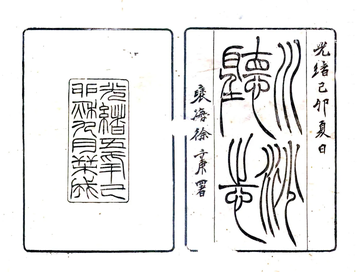 光緒己卯夏日
川沙
廳志
褎海徐三庚署
光緒五年己
卯秌九月栞成